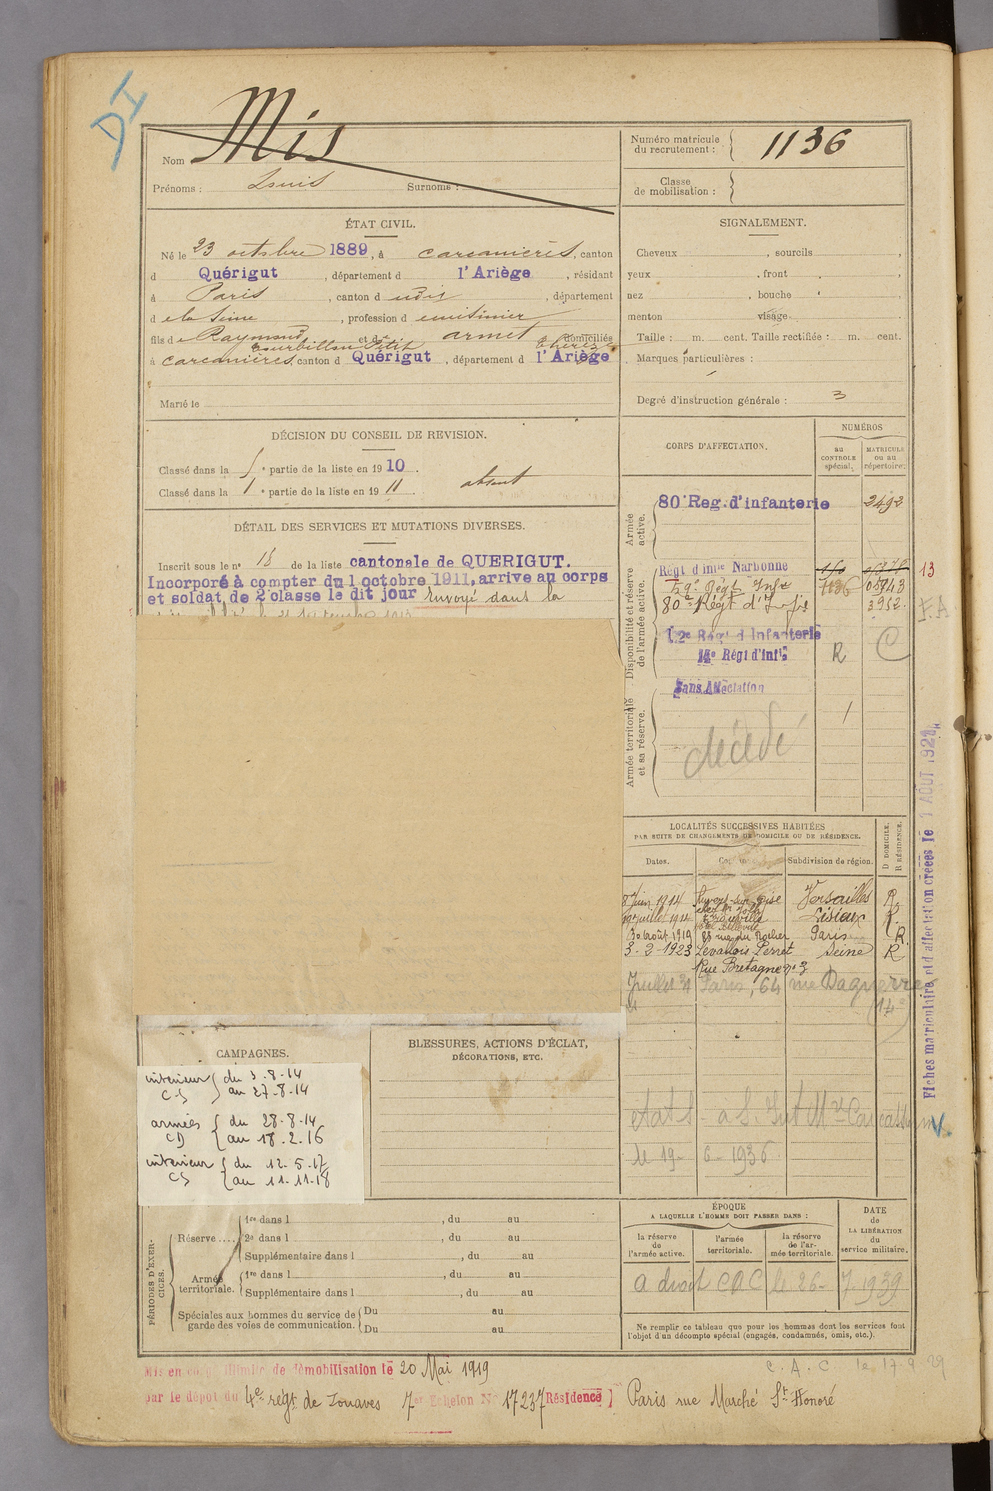 DI
Nom Mis
Prénoms : Louis Surnoms :
Numéro matricule du recrutement : 1136
Classe de mobilisation :
ÉTAT CIVIL.
Né le 23 octobre 1889, à Carcanières, canton
d Quérigut, département d l'Ariège, résidant
à Paris, canton d udis, département
d e la Seine, profession d e cuisinier
fils d e Raymond et d' armet domiciliés
Petit thérèze
à carcanières, canton d Quérigut, département d l'Ariège
Marié le
SIGNALEMENT.
Cheveux , sourcils ,
yeux , front ,
nez , bouche ,
menton visage
Taille : m. cent. Taille rectifiée : m. cent.
Marques particulières :
Degré d'instruction générale : 3
DÉCISION DU CONSEIL DE REVISION.
Classé dans la e partie de la liste en 1910.
Classé dans la 1 e partie de la liste en 1911 absent
DÉTAIL DES SERVICES ET MUTATIONS DIVERSES.
Inscrit sous le n° 18 de la liste cantonale de QUERIGUT.
Incorporé à compter du 1 octobre 1911, arrive au corps
et soldat de 2e classe le dit jour Envoyé dans la
CORPS D'AFFECTATION.
NUMÉROS
au CONTROLE spécial.
MATRICULE ou au répertoire.
Armée active.
80e Reg. d'infanterie 2492
Disponibilité et réserve de l'armée active.
Régt d'infie Narbonne
13
59e Régt Infie 1136 05843
80e Régt d'Infie 3952
F.A
2e Régt d'Infanterie
14e Régt d'Infie R C
Sans Affectation
Armée territoriale et sa réserve.
décédé
LOCALITÉS SUCCESSIVES HABITÉES
PAR SUITE DE CHANGEMENTS DE DOMICILE OU DE RÉSIDENCE.
Dates. Subdivision de région. D DOMICILE. R RÉSIDENCE.
8 Juin 1914 Auvers-sur-Oise Versailles R.
juillet 1914 Lisieux R.
30 août 1919 85 rue du Rocher Paris R.
3-2-1923 Levallois Perret Seine R
Rue Bretagne n° 3
Juillet 31 Paris, 64 rue Daguerre
(14e)
Fiches matriculaire et d'affectation créées le 1 AOUT 1927
CAMPAGNES.
intérieur CS du 3-8-14 au 27-8-14
armées CD du 28-8-14 au 18.2.16
intérieur CS du 12.5.17 au 11.11.18
BLESSURES, ACTIONS D'ÉCLAT,
DÉCORATIONS, ETC.
le 19-6-1936
PÉRIODES D'EXERCICES.
Réserve .... 1re dans l , du au
2e dans l , du au
Supplémentaire dans l , du au
Armée territoriale. 1re dans l , du au
Supplémentaire dans l , du au
Spéciales aux hommes du service de garde des voies de communication. Du au
Du au
ÉPOQUE
A LAQUELLE L'HOMME DOIT PASSER DANS :
la réserve de l'armée active.
l'armée territoriale.
la réserve de l'armée territoriale.
DATE de LA LIBÉRATION du service militaire.
A droit CDC le 26-7-1939
Ne remplir ce tableau que pour les hommes dont les services font
l'objet d'un décompte spécial (engagés, condamnés, omis, etc.).
C.A.C. le 17-9-29
Mis en congé illimité de démobilisation le 20 Mai 1919
par le dépôt du 4e régt de Zouaves 7er Echelon N° 17237 Résidence Paris rue Marché St Honoré